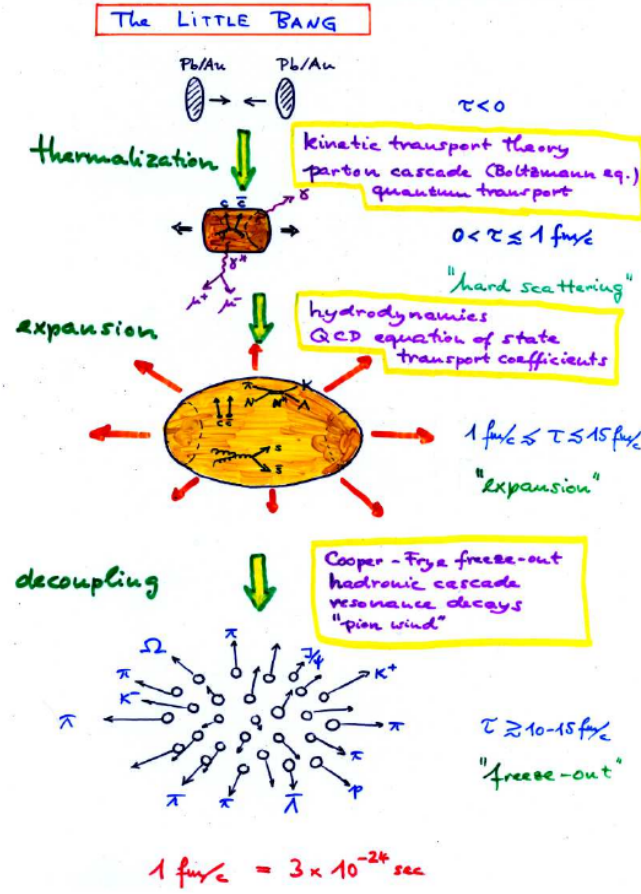 The LITTLE BANG
Pb/Au Pb/Au
τ<0
thermalization
kinetic transport theory
parton cascade (Boltzmann eq.)
quantum transport
c c̄ γ
0 < τ ≲ 1 fm/c
γ*
μ⁺ μ⁻
"hard scattering"
expansion
hydrodynamics
QCD equation of state
transport coefficients
π K
N N* Λ
c c̄
s
s̄
1 fm/c ≲ τ ≲ 15 fm/c
"expansion"
decoupling
Cooper-Frye freeze-out
hadronic cascade
resonance decays
"pion wind"
Ω π J/ψ
π K⁺
K⁻
π π
τ ≳ 10-15 fm/c
π
"freeze-out"
π π Λ̄ p
1 fm/c = 3 × 10⁻²⁴ sec